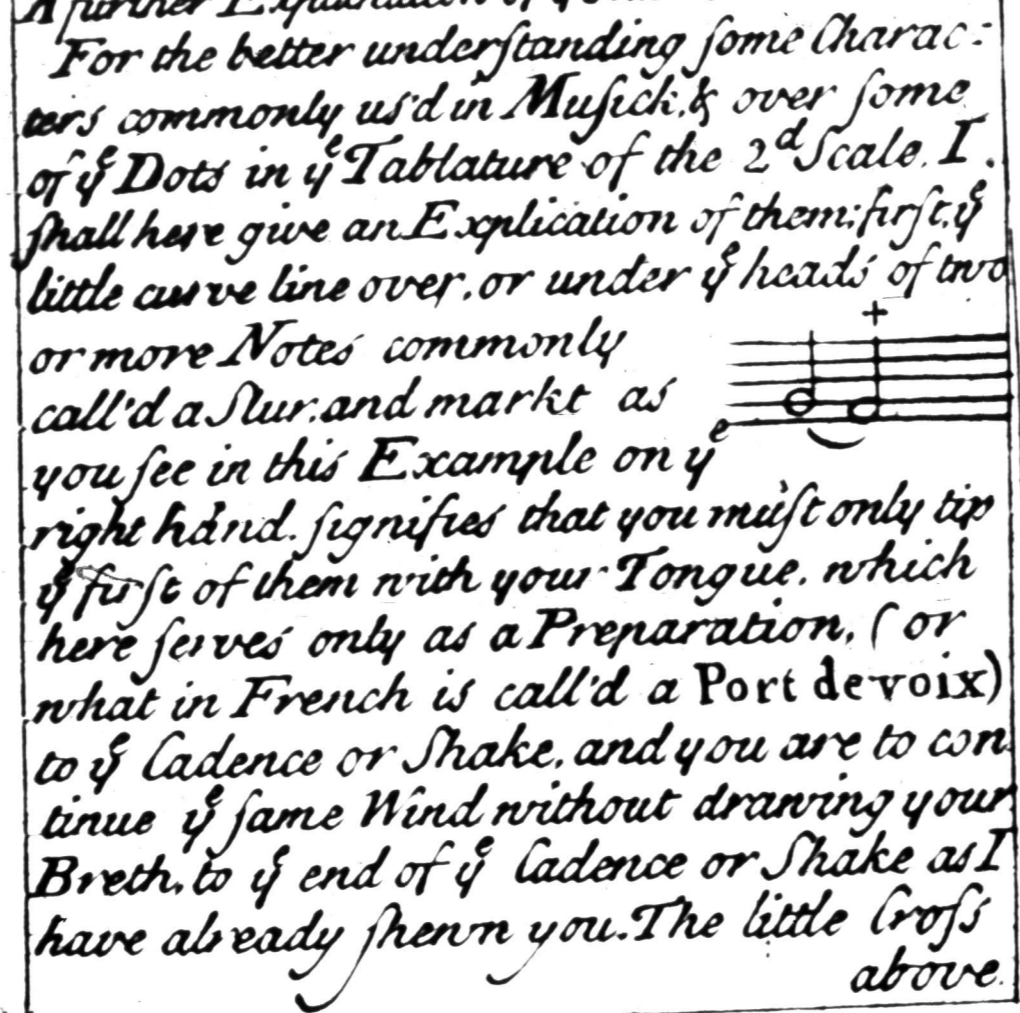 A further Explanation of yͤ
For the better underſtanding ſome Charac:
ters commonly us'd in Muſick, & over ſome
of yͤ Dots in yͤ Tablature of the 2ᵈ Scale, I.
ſhall here give an Explication of them; firſt, yͤ
little curve line over, or under yͤ heads of two
or more Notes commonly
call'd a Slur, and markt as
you ſee in this Example on yͤ
right hand, ſignifies that you muſt only tip
yͤ firſt of them with your Tongue, which
here ſerves only as a Preparation, (or
what in French is call'd a Port de voix)
to yͤ Cadence or Shake, and you are to con
tinue yͤ ſame Wind without drawing your
Breth, to yͤ end of yͤ Cadence or Shake as I
have already ſhewn you. The little Croſs
above.